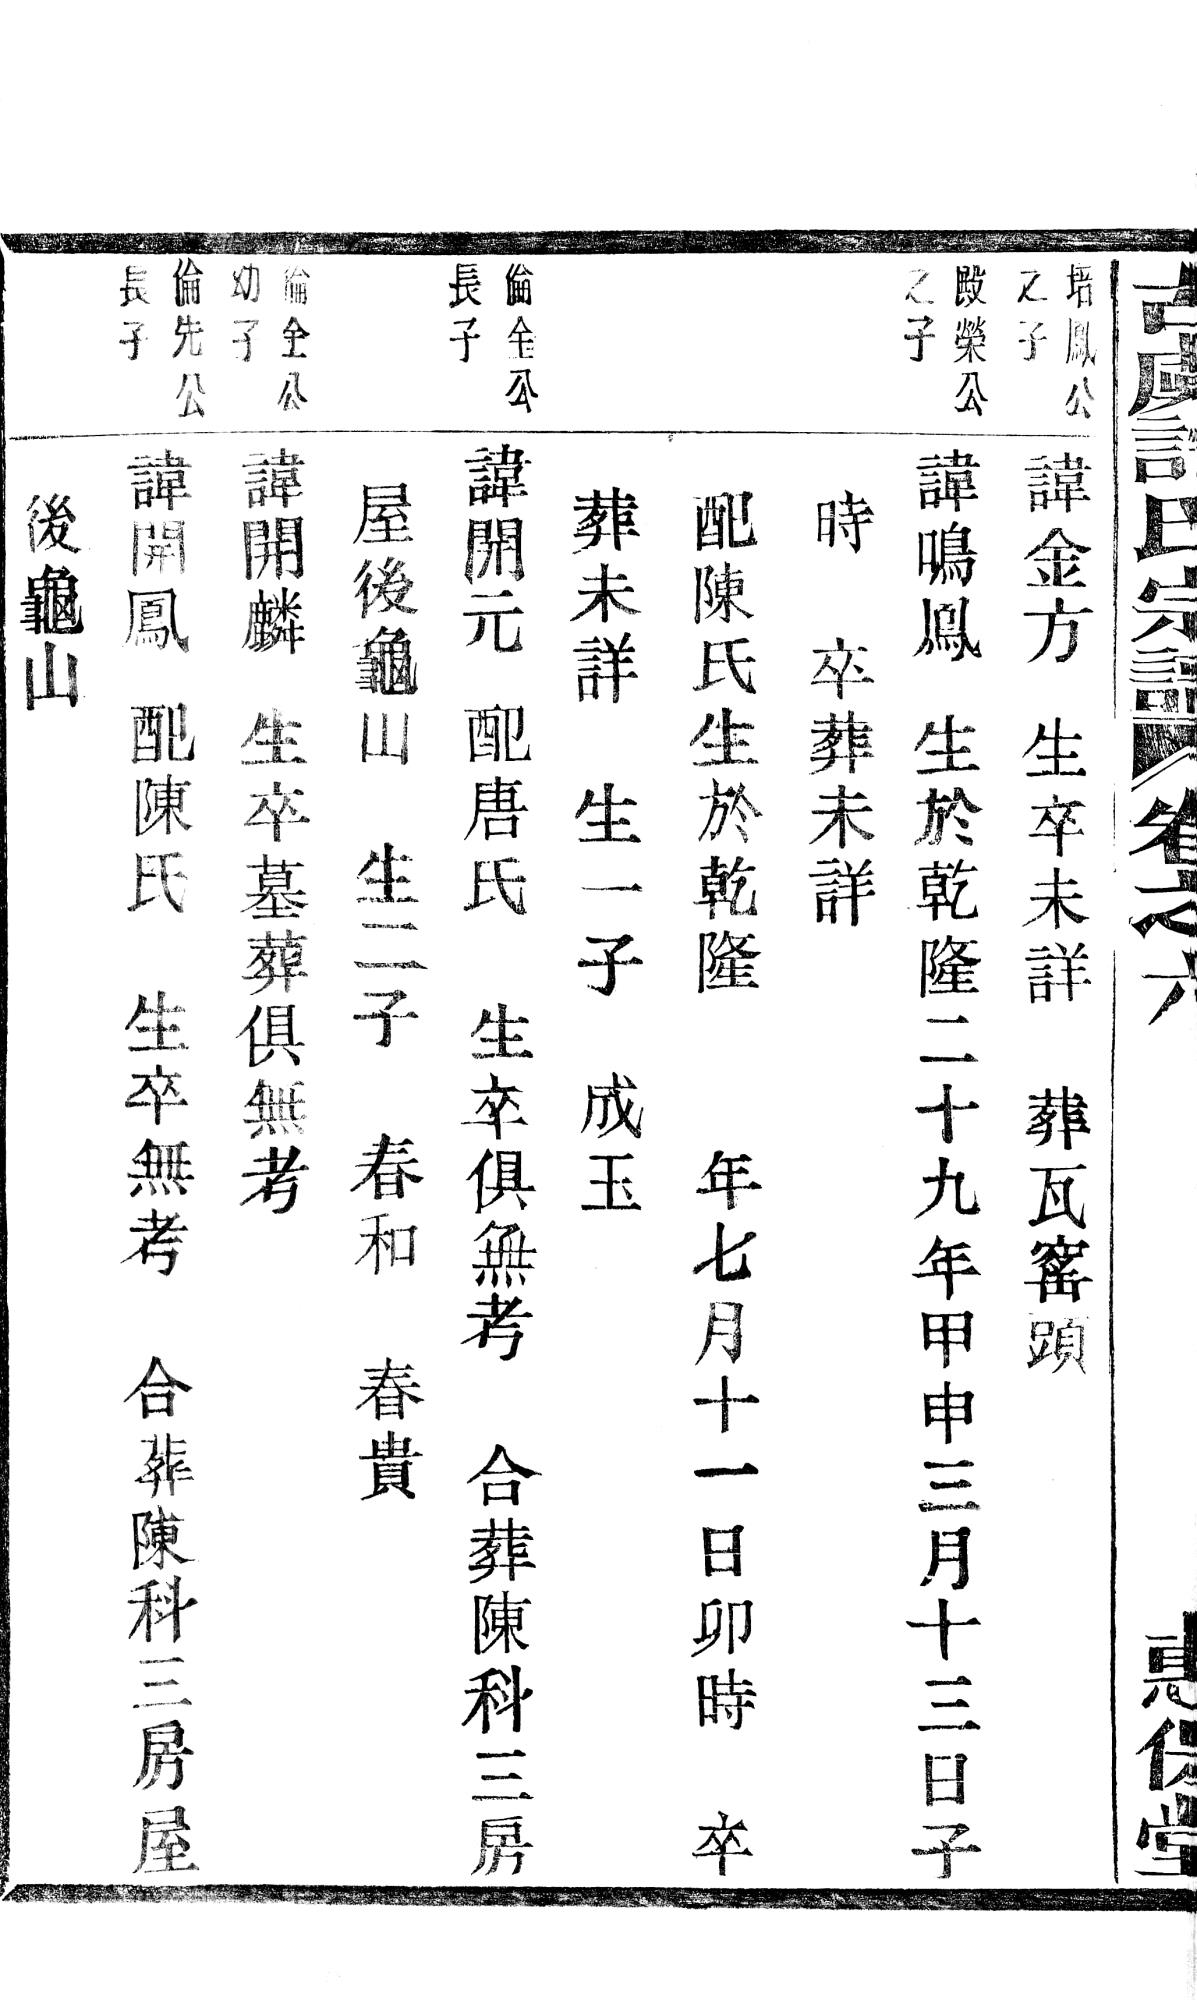 古虞許氏宗譜 卷之六 惠保堂
培鳳公
之子
諱金方 生卒未詳 葬瓦窰頭
殿榮公
之子
諱鳴鳳 生於乾隆二十九年甲申三月十三日子
時 卒葬未詳
配陳氏生於乾隆 年七月十一日卯時 卒
葬未詳 生一子 成玉
倫全公
長子
諱開元 配唐氏 生卒俱無考 合葬陳科三房
屋後龜山 生二子 春和 春貴
倫全公
幼子
諱開麟 生卒墓葬俱無考
倫先公
長子
諱開鳳 配陳氏 生卒無考 合葬陳科三房屋
後龜山